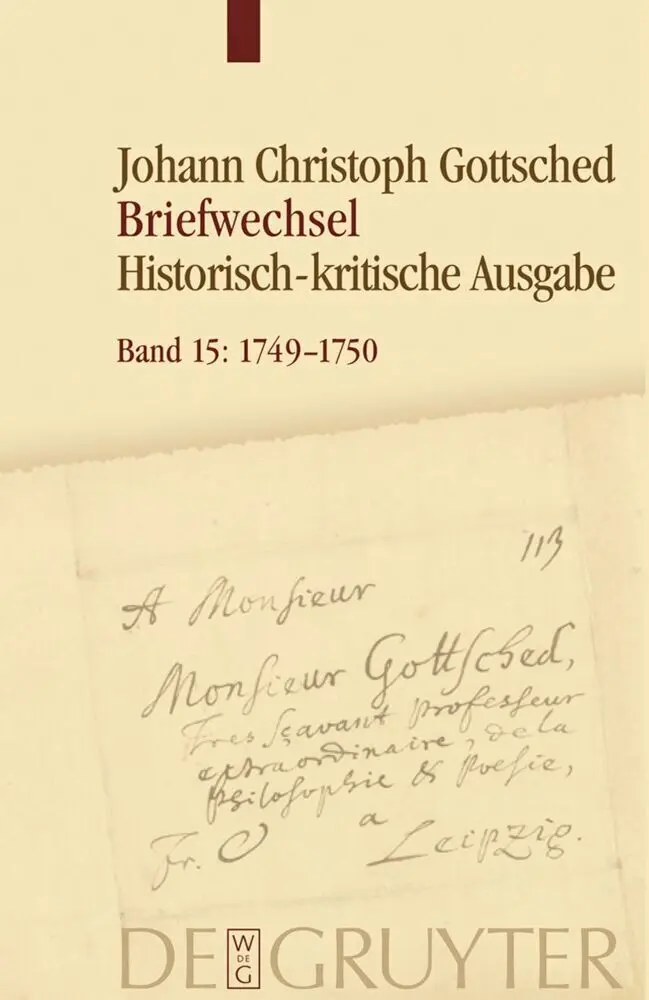 Johann Christoph Gottsched
Briefwechsel
Historisch-kritische Ausgabe
Band 15: 1749–1750
113
A Monsieur
Monsieur Gottsched,
Tres sçavant professeur
extraordinaire, de la
philosophie & Poesie,
a
Fr. Leipzig.
DE GRUYTER
W
DE
G